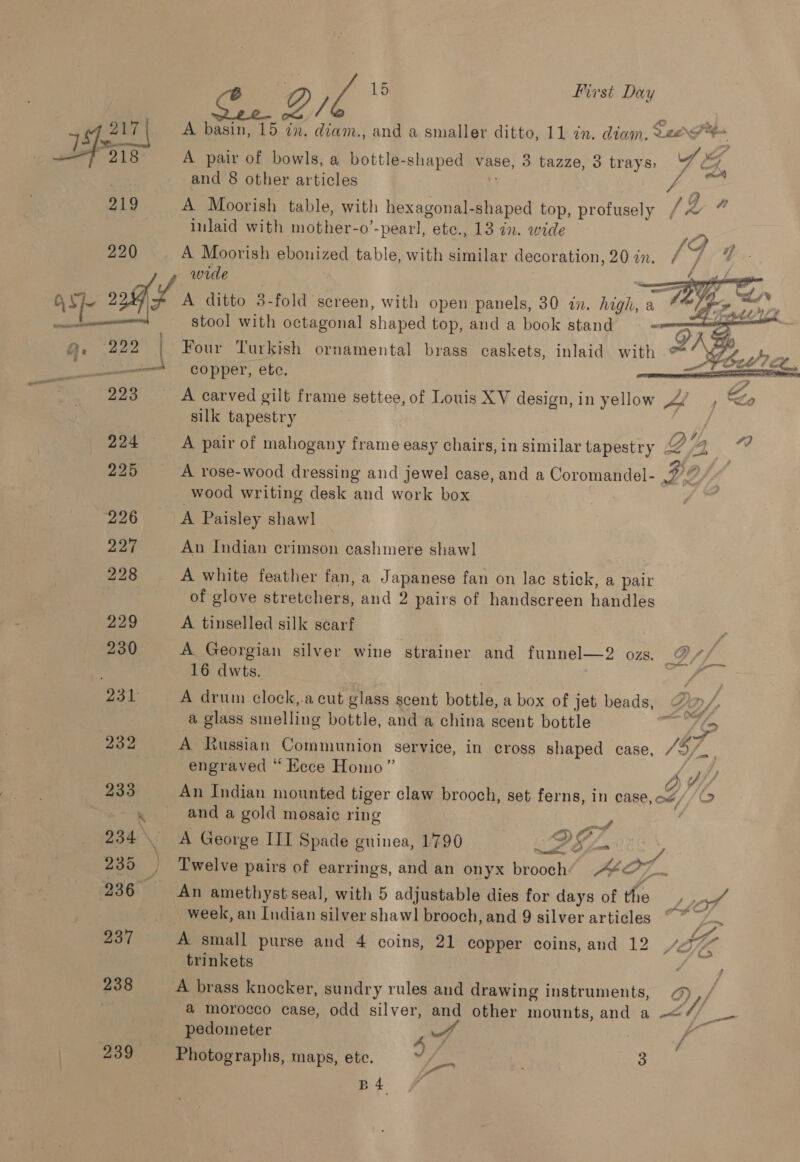 15 First Day
See 2/6
217 A basin, 15 in. diam., and a smaller ditto, 11 in. diam.
218 A pair of bowls, a bottle-shaped vase, 3 tazze, 3 trays,
and 8 other articles
219 A Moorish table, with hexagonal-shaped top, profusely
inlaid with mother-o'-pearl, etc., 13 in. wide
220 A Moorish ebonized table, with similar decoration, 20 in.
wide
A ditto 3-fold screen, with open panels, 30 in. high, a
stool with octagonal shaped top, and a book stand
222 Four Turkish ornamental brass caskets, inlaid with
copper, etc.
223 A carved gilt frame settee, of Louis XV design, in yellow
silk tapestry
224 A pair of mahogany frame easy chairs, in similar tapestry
225 A rose-wood dressing and jewel case, and a Coromandel-
wood writing desk and work box
226 A Paisley shawl
227 An Indian crimson cashmere shawl
228 A white feather fan, a Japanese fan on lac stick, a pair
of glove stretchers, and 2 pairs of handscreen handles
229 A tinselled silk scarf
230 A Georgian silver wine strainer and funnel—2 ozs.
16 dwts.
231 A drum clock, a cut glass scent bottle, a box of jet beads,
a glass smelling bottle, and a china scent bottle
232 A Russian Communion service, in cross shaped case,
engraved "Ecce Homo"
233 An Indian mounted tiger claw brooch, set ferns, in case,
and a gold mosaic ring
234 A George III Spade guinea, 1790
235 Twelve pairs of earrings, and an onyx brooch
236 An amethyst seal, with 5 adjustable dies for days of the
week, an Indian silver shawl brooch, and 9 silver articles
237 A small purse and 4 coins, 21 copper coins, and 12
trinkets
238 A brass knocker, sundry rules and drawing instruments,
a morocco case, odd silver, and other mounts, and a
pedometer
239 Photographs, maps, etc. 3
B 4